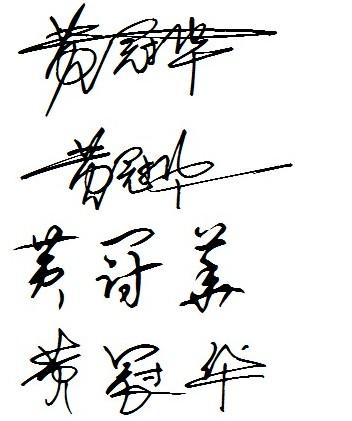 黄冠华
黄冠华
黄冠华
黄冠华